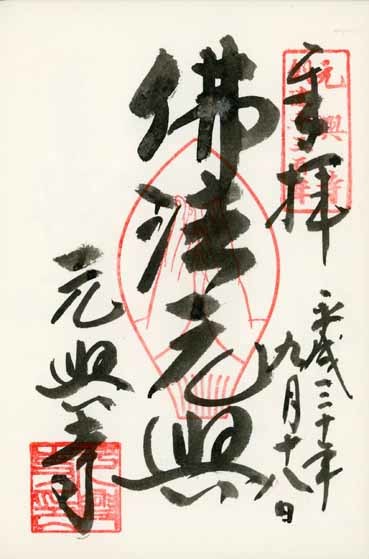 奉拝
平成三十年
九月十八日
佛法元興
元興寺
元興寺